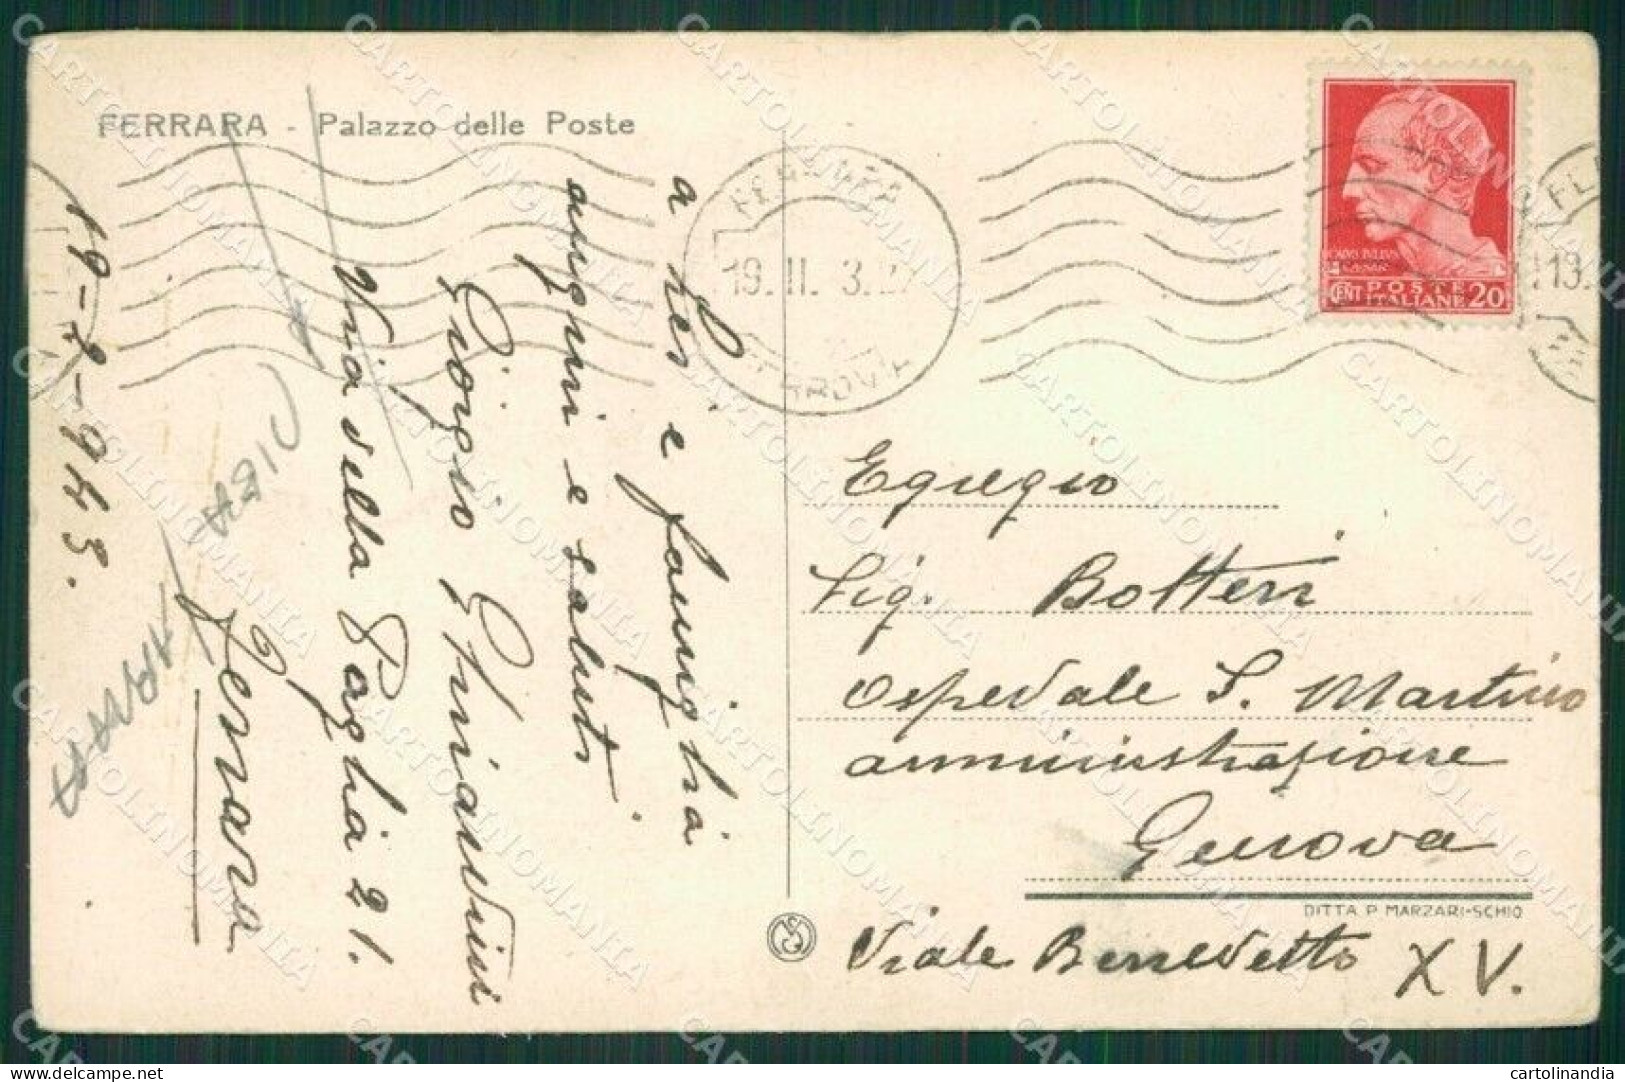 FERRARA - Palazzo delle Poste
a Lei e famiglia
auguri e saluti
Giorgio Ghiandini
Via della Paglia 21.
Ferrara
19-2-943.
FERRARA
19. II. 3.
FERROVIA
CAIVS IVLIVS
CAESAR
CENT POSTE
ITALIANE 20
19.
Egregio
Sig. Botteri
Ospedale S. Martino
amministrazione
Genova
DITTA P. MARZARI-SCHIO
Viale Benedetto XV.
CARTOLINOMANIA
cartolinandia
delcampe.net